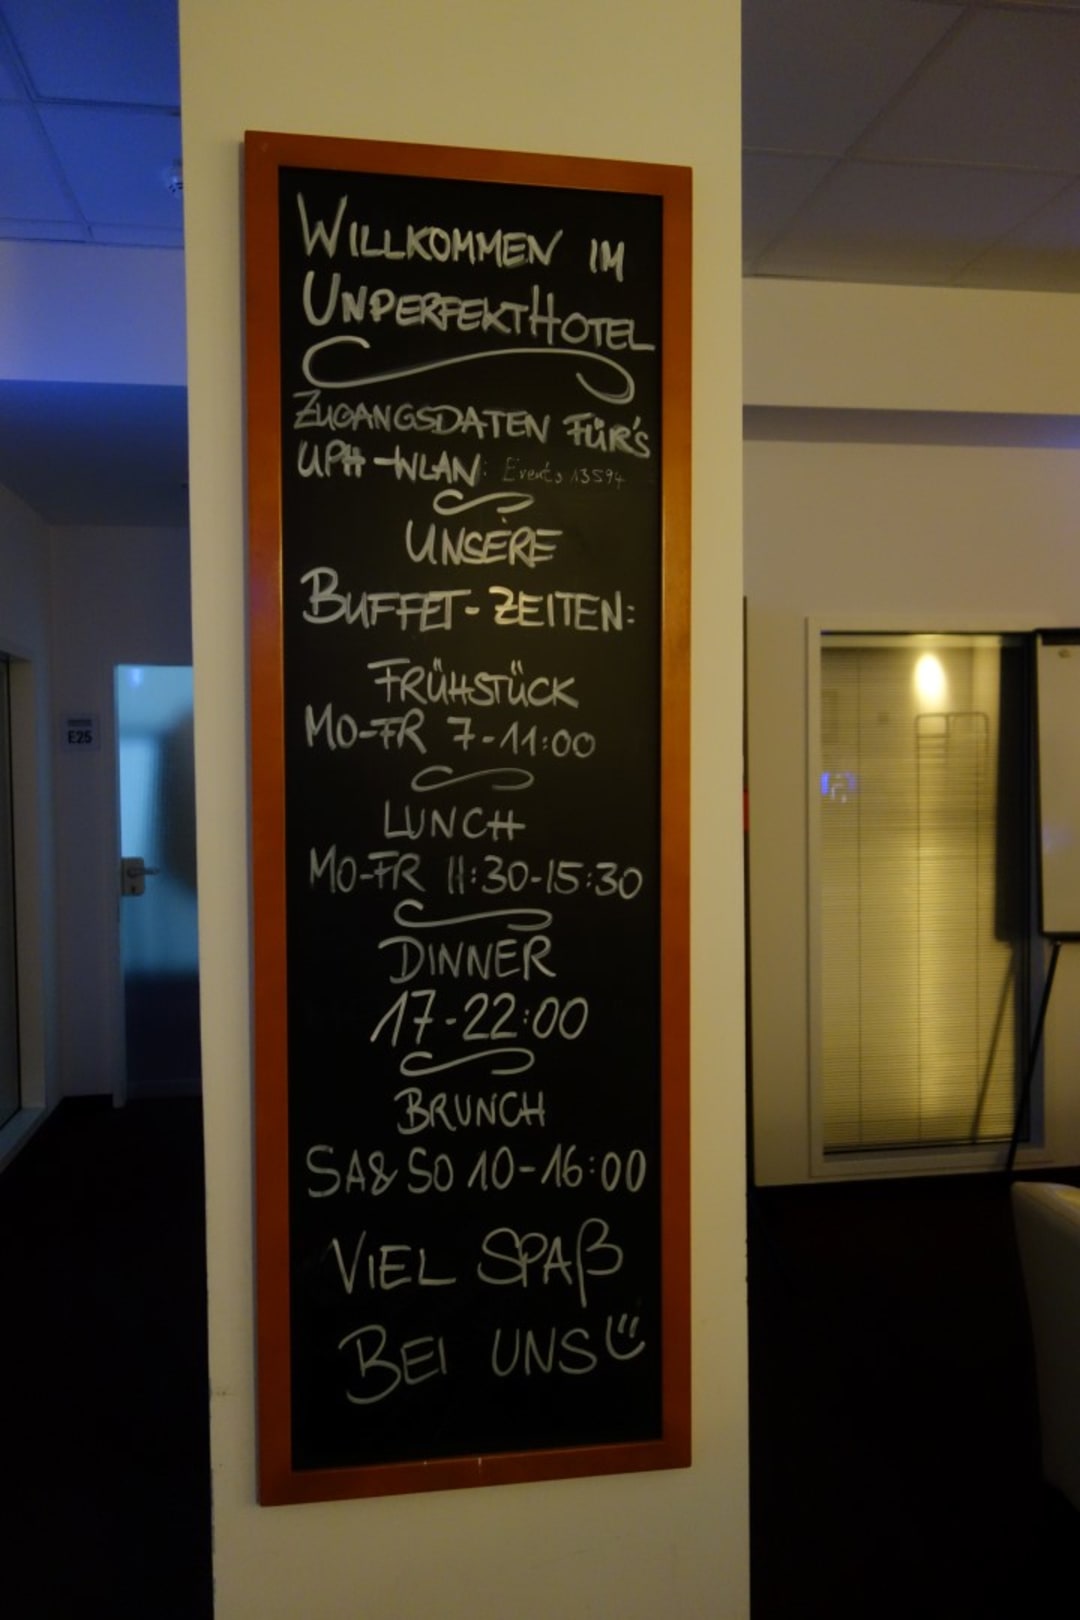 WILLKOMMEN IM
UNPERFEKTHOTEL
ZUGANGSDATEN FÜR'S
UPH-WLAN: Events 13594
UNSERE
BUFFET-ZEITEN:
FRÜHSTÜCK
MO-FR 7-11:00
LUNCH
MO-FR 11:30-15:30
DINNER
17-22:00
BRUNCH
SA & SO 10-16:00
VIEL SPAß
BEI UNS
E25